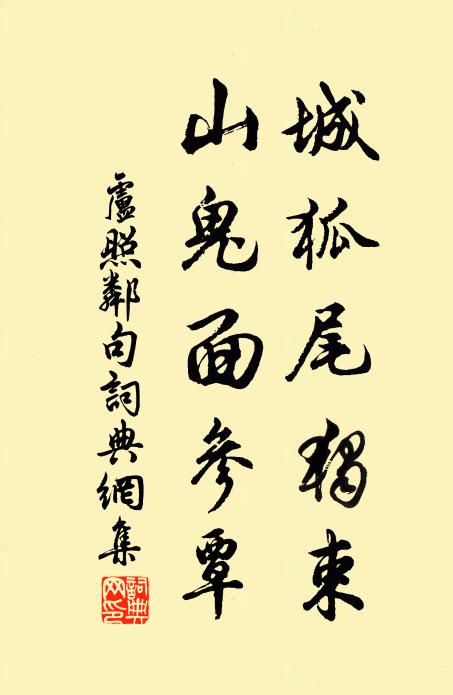 城狐尾獨束
山鬼面參覃
盧照鄰句詞典網集
詞典网印